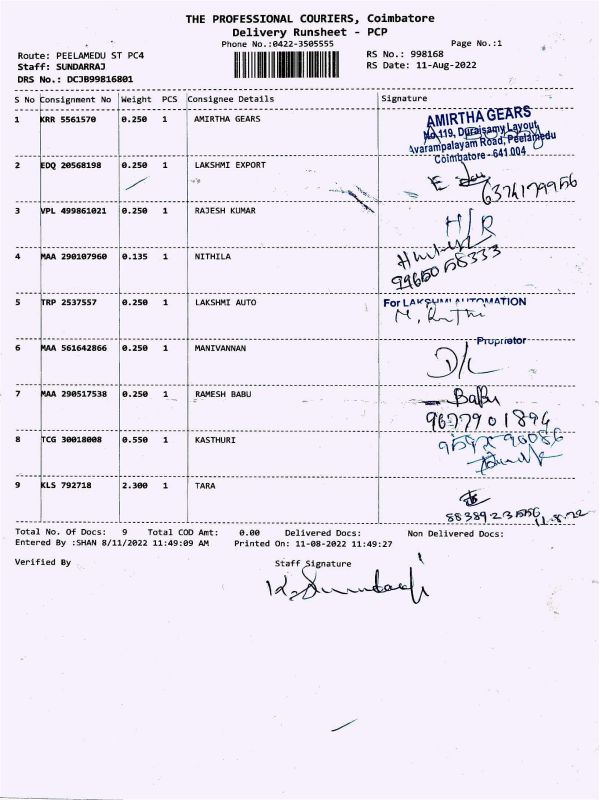 THE PROFESSIONAL COURIERS, Coimbatore
Delivery Runsheet - PCP
Phone No.:0422-3505555
Page No.:1
Route: PEELAMEDU ST PC4
RS No.: 998168
Staff: SUNDARRAJ
RS Date: 11-Aug-2022
DRS No.: DCJB99816801
S No Consignment No Weight PCS Consignee Details Signature
1 KRR 5561570 0.250 1 AMIRTHA GEARS
AMIRTHA GEARS
No.119, Duraisamy Layout,
Avarampalayam Road, Peelamedu
Coimbatore - 641 004
2 EDQ 20568198 0.250 1 LAKSHMI EXPORT
6374179956
3 VPL 499861021 0.250 1 RAJESH KUMAR
H/R
4 MAA 290107960 0.135 1 NITHILA
5 TRP 2537557 0.250 1 LAKSHMI AUTO
For LAKSHMI AUTOMATION
Proprietor
6 MAA 561642866 0.250 1 MANIVANNAN
D/L
7 MAA 290517538 0.250 1 RAMESH BABU
Babu
9677901894
8 TCG 30018008 0.550 1 KASTHURI
9 KLS 792718 2.300 1 TARA
11.8.22
Total No. Of Docs: 9 Total COD Amt: 0.00 Delivered Docs: Non Delivered Docs:
Entered By :SHAN 8/11/2022 11:49:09 AM Printed On: 11-08-2022 11:49:27
Verified By
Staff Signature